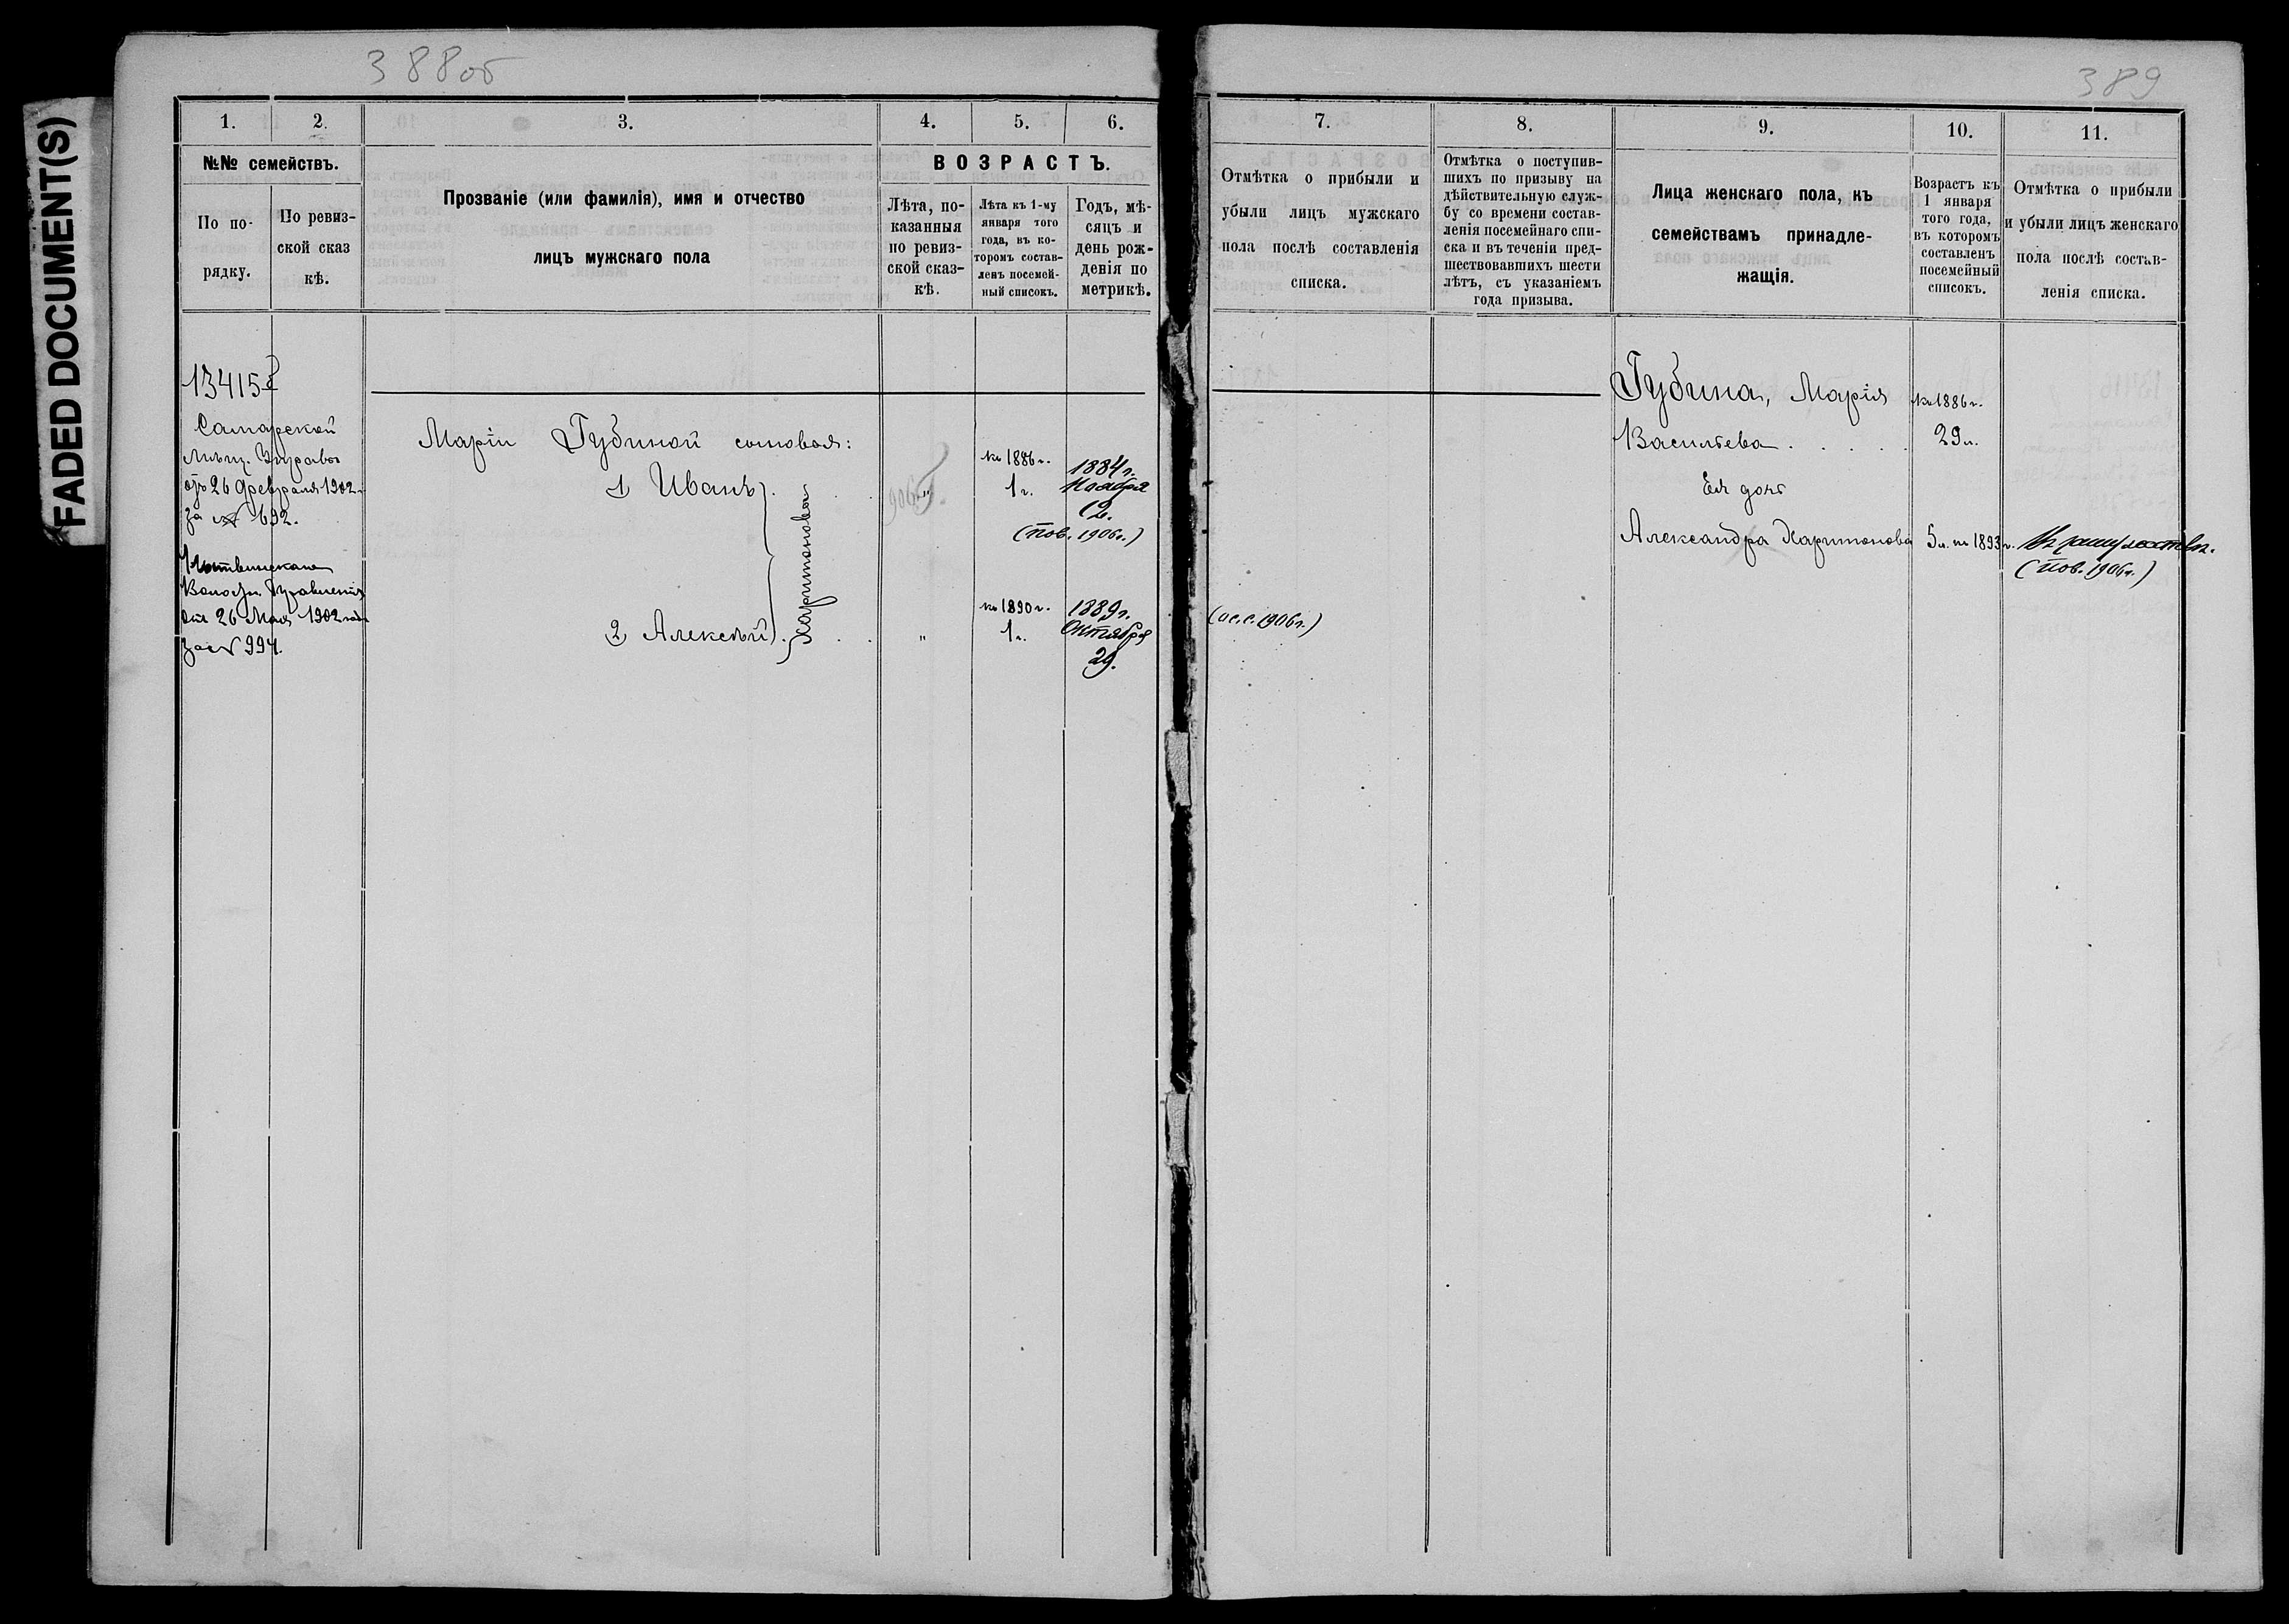 FADED DOCUMENT(S)
388об
389
1.
2.
3.
4.
5.
6.
№№ семействъ.
По по-
рядку.
По ревиз-
ской сказ
кѣ.
Прозваніе (или фамилія), имя и отчество
лицъ мужскаго пола
ВОЗРАСТЪ.
Лѣта, по-
казанныя
по ревиз-
ской сказ-
кѣ.
Лѣта къ 1-му
января того
года, въ ко-
торомъ состав-
ленъ посемей-
ный списокъ.
Годъ, мѣ-
сяцъ и
день рож-
денія по
метрикѣ.
7.
8.
9.
10.
11.
Отмѣтка о прибыли и
убыли лицъ мужскаго
пола послѣ составленія
списка.
Отмѣтка о поступив-
шихъ по призыву на
дѣйствительную служ-
бу со времени состав-
ленія посемейнаго спи-
ска и въ теченіи пред-
шествовавшихъ шести
лѣтъ, съ указаніемъ
года призыва.
Лица женскаго пола, къ
семействамъ принадле-
жащія.
Возрастъ къ
1 января
того года,
въ которомъ
составленъ
посемейный
списокъ.
Отмѣтка о прибыли
и убыли лицъ женскаго
пола послѣ состав-
ленія списка.
13415
Самарской
Мѣщ. Управы
отъ 26 Февраля 1902 г.
за № 692.
Волостн. Правленія
отъ 26 Мая 1902 года
за № 994.
Маріи Губиной сыновья:
1 Иванъ
2 Алексѣй
Харитоновы
906
"
къ 1886 г.
1 г.
1884 г.
Ноября
12.
(пов. 1906 г.)
"
къ 1890 г.
1 г.
1889 г.
Октября
29.
(ос.с. 1906 г.)
Губина, Марія
Васильева
къ 1886 г.
29 л.
Ея дочь
Александра Харитонова
5 л. къ 1893 г.
Въ замужествѣ.
(пов. 1906 г.)